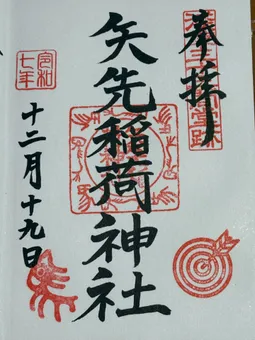 奉拝
矢先稲荷神社
令和
七年
十二月十九日